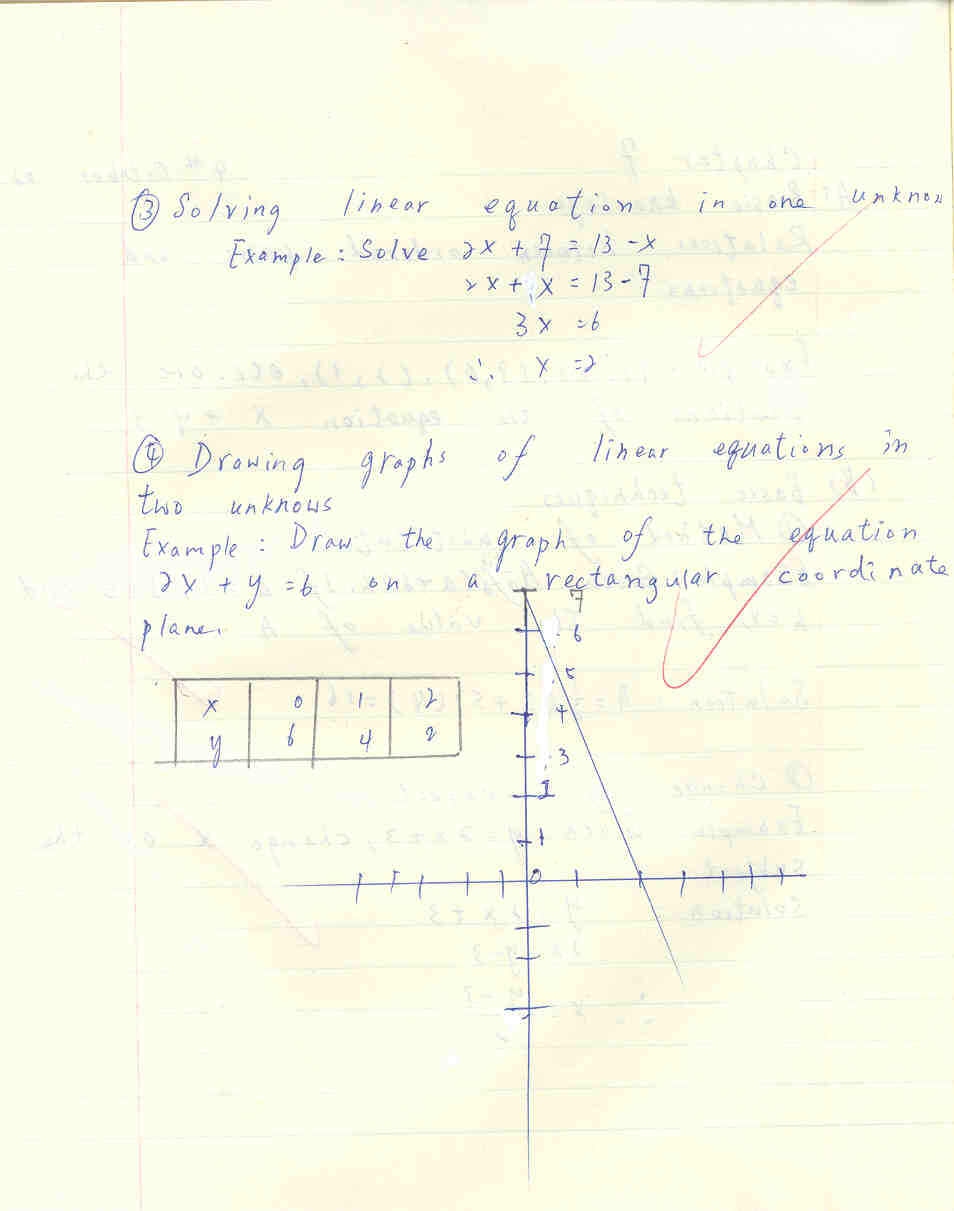 ③ Solving linear equation in one unknow
Example : Solve 2x + 7 = 13 - x
2x + x = 13 - 7
3x = 6
∴ x = 2
④ Drawing graphs of linear equations in
two unknows
Example : Draw the graph of the equation
2x + y = 6 on a rectangular coordinate
plane.
x 0 1 2
y 6 4 2
7
6
5
4
3
1
0